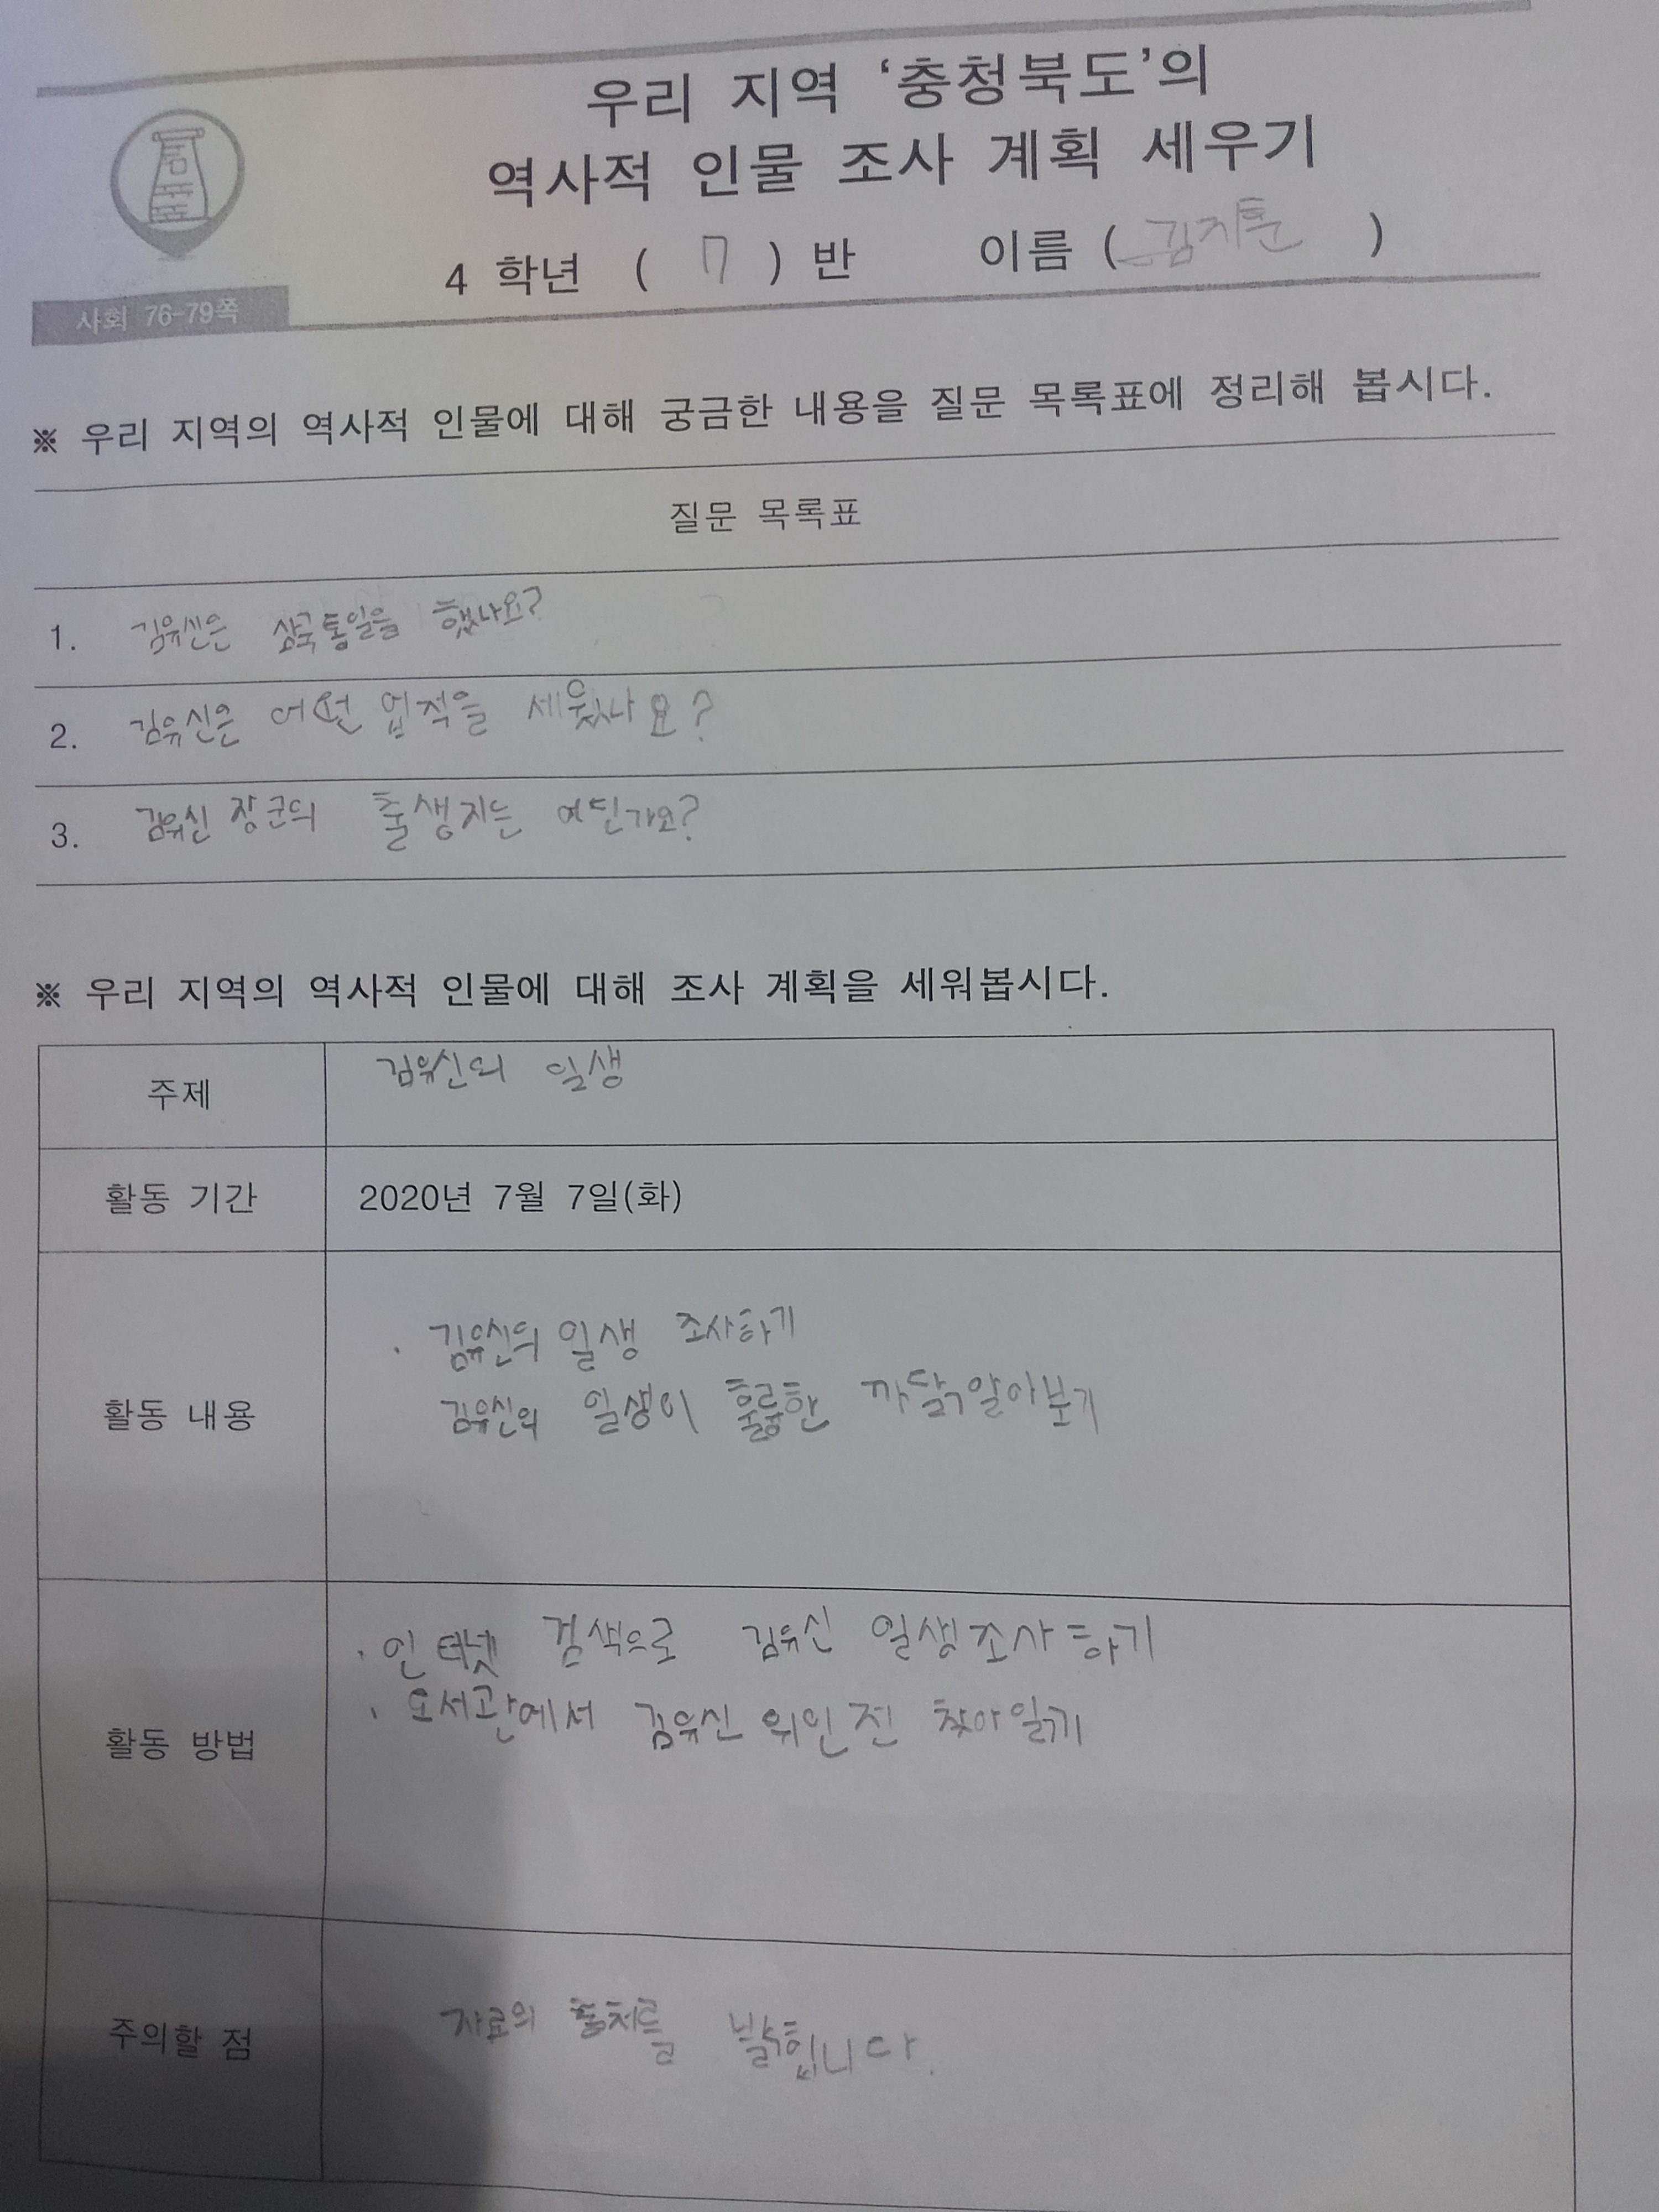 우리 지역 '충청북도'의
역사적 인물 조사 계획 세우기
4 학년 ( 7 ) 반 이름 ( 김지훈 )
사회 76-79쪽
※ 우리 지역의 역사적 인물에 대해 궁금한 내용을 질문 목록표에 정리해 봅시다.
질문 목록표
1. 김유신은 삼국통일을 했나요?
2. 김유신은 어떤 업적을 세웠나요?
3. 김유신 장군의 출생지는 어딘가요?
※ 우리 지역의 역사적 인물에 대해 조사 계획을 세워봅시다.
주제 김유신의 일생
활동 기간 2020년 7월 7일(화)
활동 내용
· 김유신의 일생 조사하기
김유신의 일생이 훌륭한 까닭 알아보기
활동 방법
· 인터넷 검색으로 김유신 일생조사하기
· 도서관에서 김유신 위인전 찾아 읽기
주의할 점 자료의 출처를 밝힙니다.